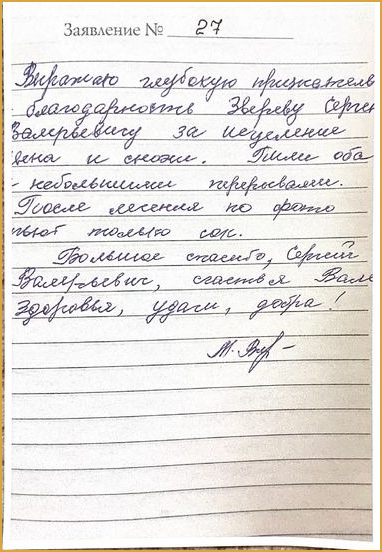 Заявление № 27
Выражаю глубокую признатель
благодарность Звереву Серге
Валерьевичу за исцеление
сына и снохи. Пили оба
- небольшими перерывами.
После лечения по фото
пьют только сок.
Большое спасибо, Сергей
Валерьевич, счастья Вам
здоровья, удачи, добра!